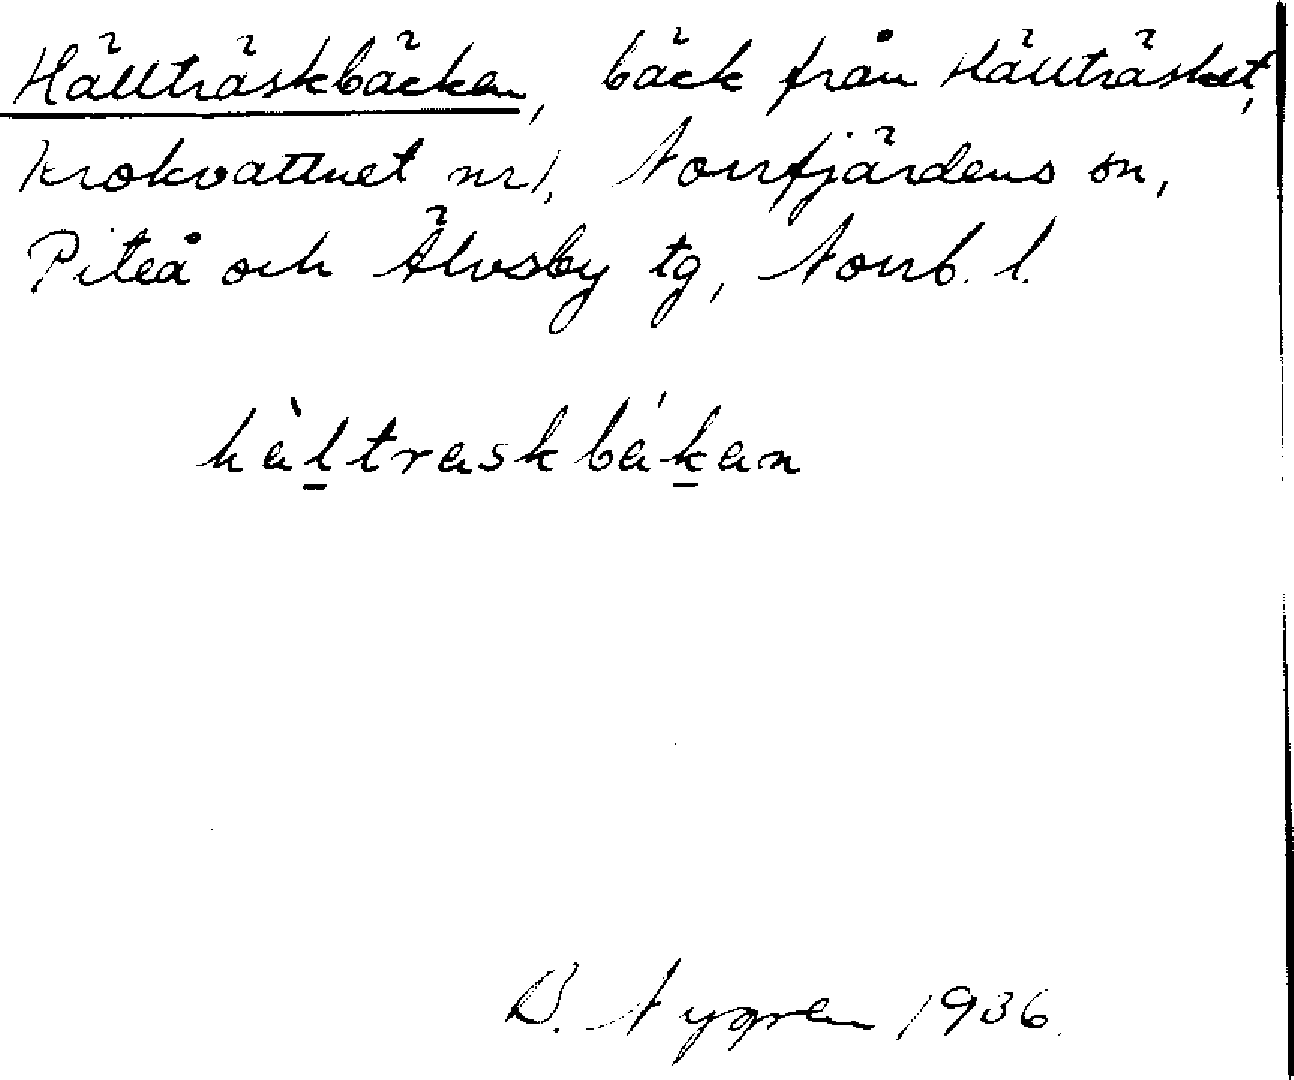 Hällträskbäcken, bäck från Hällträsket,
Krokvattnet nr 1, Norrfjärdens sn,
Piteå och Älvsby tg, Norrb. l.
hàl̲traskbák̲an
B. Nygren 1936.